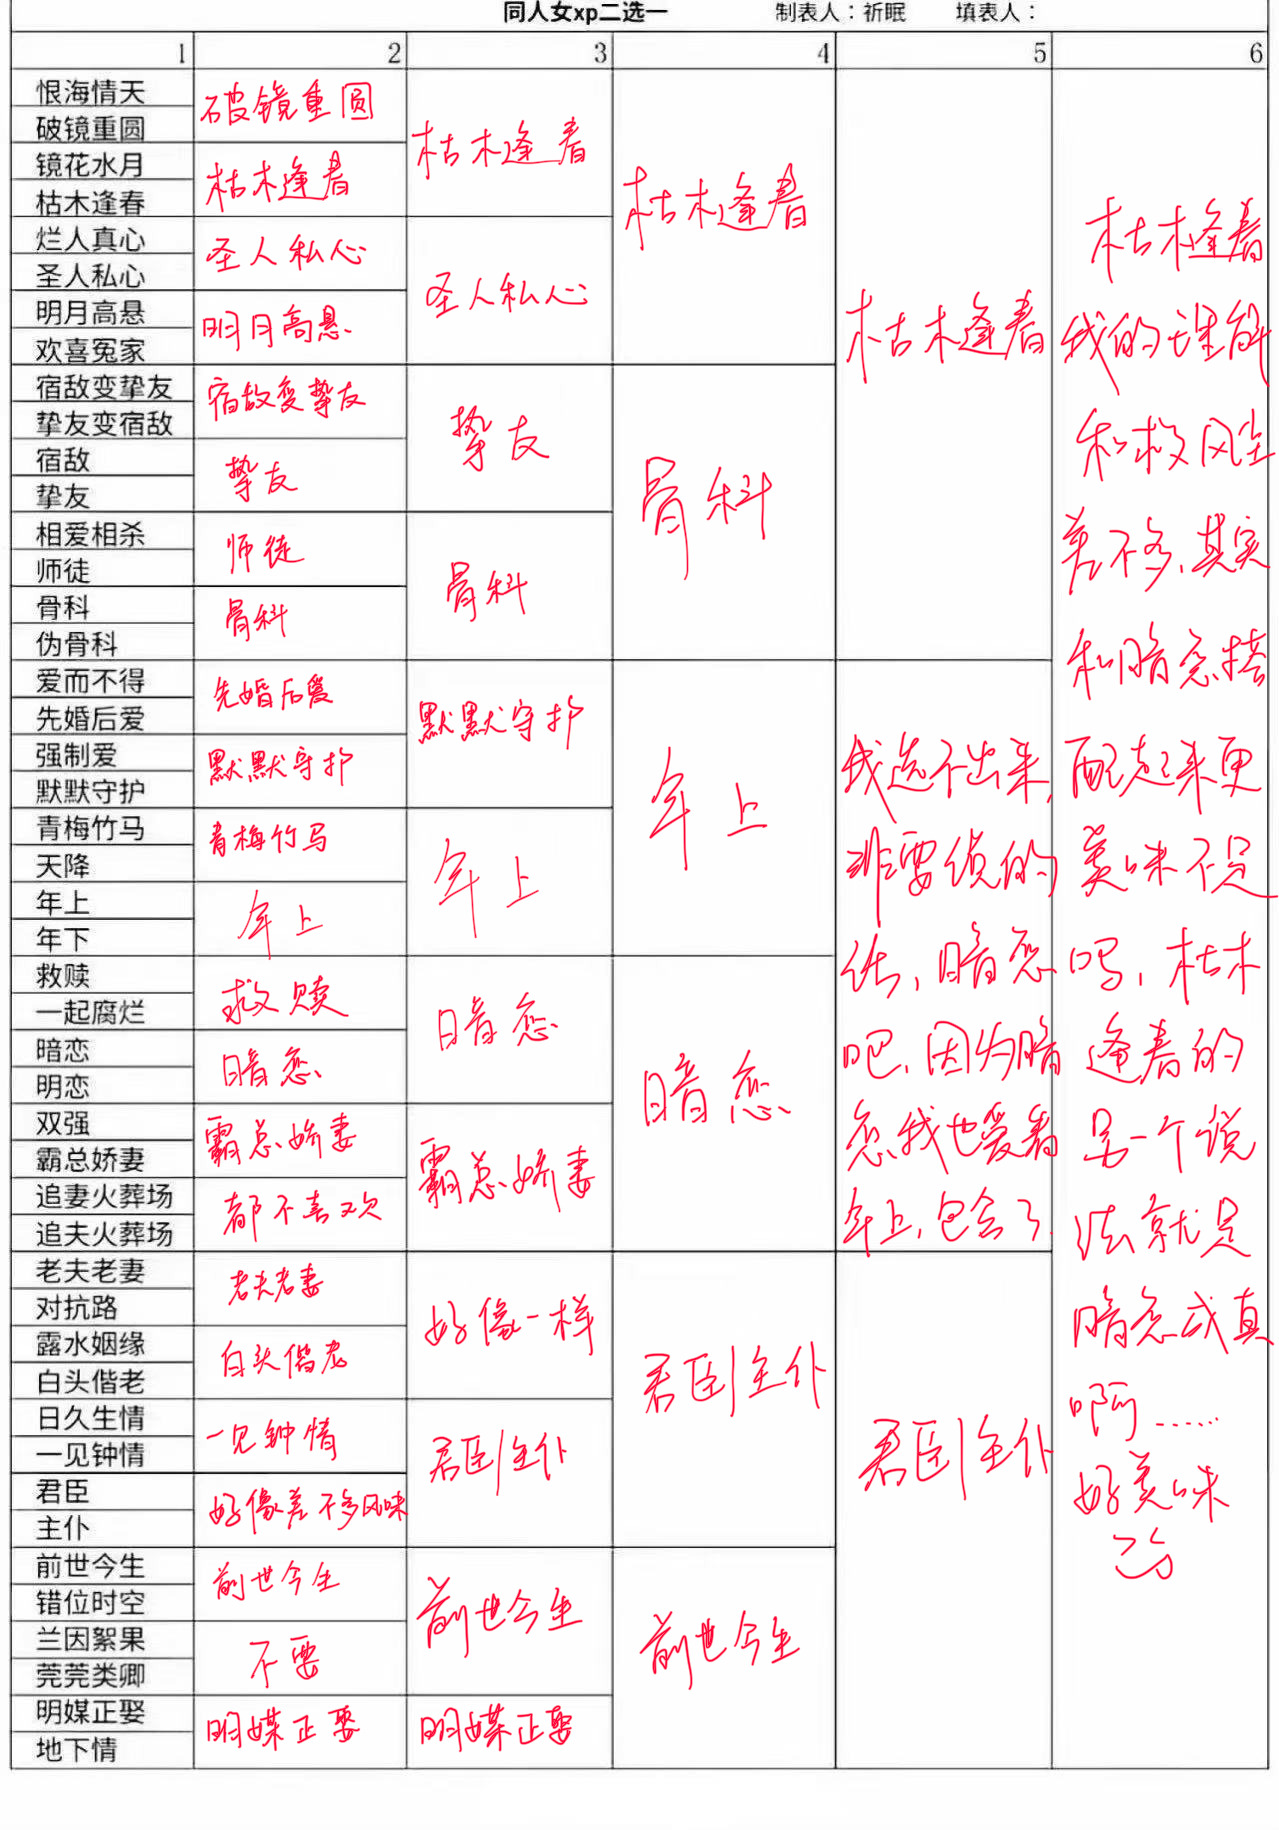 同人女xp二选一 制表人：祈眠 填表人：
1 2 3 4 5 6
恨海情天
破镜重圆
镜花水月
枯木逢春
烂人真心
圣人私心
明月高悬
欢喜冤家
宿敌变挚友
挚友变宿敌
宿敌
挚友
相爱相杀
师徒
骨科
伪骨科
爱而不得
先婚后爱
强制爱
默默守护
青梅竹马
天降
年上
年下
救赎
一起腐烂
暗恋
明恋
双强
霸总娇妻
追妻火葬场
追夫火葬场
老夫老妻
对抗路
露水姻缘
白头偕老
日久生情
一见钟情
君臣
主仆
前世今生
错位时空
兰因絮果
莞莞类卿
明媒正娶
地下情
破镜重圆
枯木逢春
圣人私心
明月高悬
宿敌变挚友
挚友
师徒
骨科
先婚后爱
默默守护
青梅竹马
年上
救赎
暗恋
霸总娇妻
都不喜欢
老夫老妻
白头偕老
一见钟情
好像差不多风味
前世今生
不要
明媒正娶
枯木逢春
圣人私心
挚友
骨科
默默守护
年上
暗恋
霸总娇妻
好像一样
君臣/主仆
前世今生
明媒正娶
枯木逢春
骨科
年上
暗恋
君臣/主仆
前世今生
枯木逢春
我选不出来,
非要侦的
话,暗恋
吧,因为暗
恋我也爱看
年上,包含了
君臣/主仆
枯木逢春
我的理解
和救风尘
差不多,其实
和暗恋搭
配起来更
美味不是
吗,枯木
逢春的
另一个说
法就是
暗恋成真
啊……
好美味